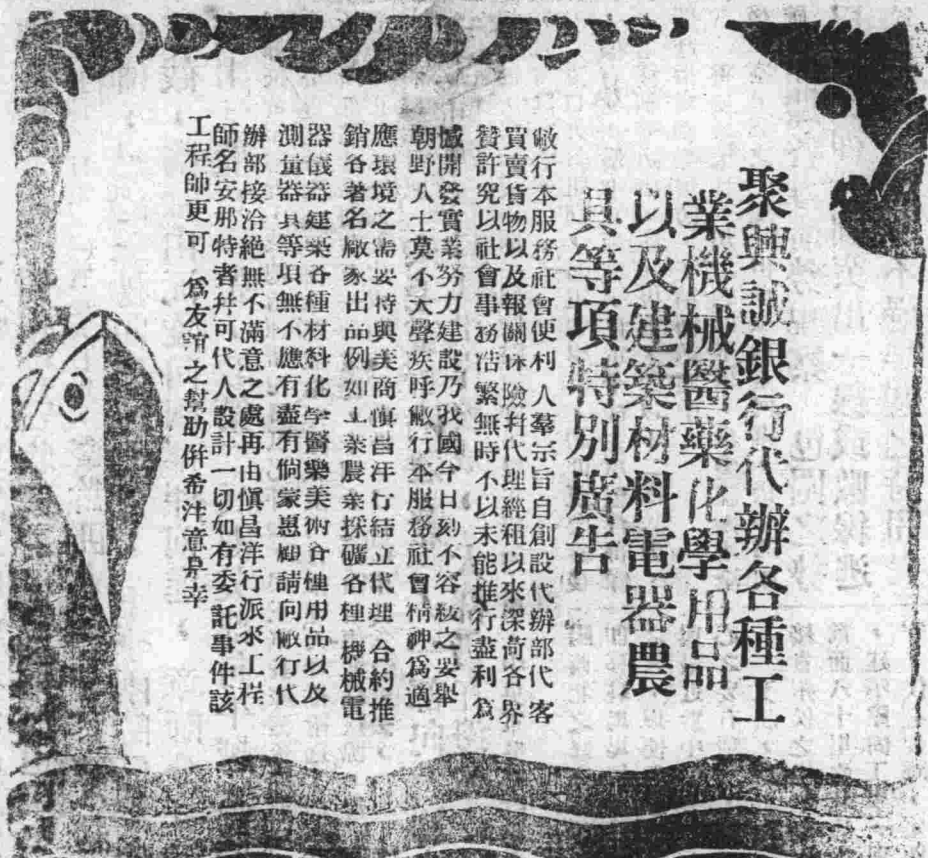 聚興誠銀行代辦各種工
業機械醫藥化學用品
以及建築材料電器農
具等項特別廣告
敝行本服務社會便利人羣宗旨自創設代辦部代客
買賣貨物以及報關保險并代理經租以來深荷各界
贊許究以社會事務浩繁無時不以未能推行盡利為
憾開發實業努力建設乃我國今日刻不容緩之要舉
朝野人士莫不大聲疾呼敝行本服務社會精神為適
應環境之需要特與美商慎昌洋行結立代理合約推
銷各著名廠家出品例如工業農業採礦各種機械電
器儀器建築各種材料化學醫藥美術各種用品以及
測量器具等項無不應有盡有倘蒙惠顧請向敝行代
辦部接洽絕無不滿意之處再由慎昌洋行派來工程
師名安那特者并可代人設計一切如有委託事件該
工程師更可為友誼之幫助併希注意是幸